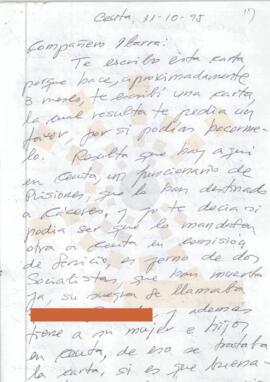 Ceuta, 11-10-95
Compañero Ibarra:
Te escribo esta carta
porque hace, aproximadamente
3 meses, te escribí una carta,
la cual resulta te pedia un
favor, por si podias hacerme-
lo. Resulta que hay aqui
en Ceuta, un funcionario de
Prisiones, que lo han destinado
a Cáceres, y yo te decia si
podia ser que lo mandaran
otra a Ceuta en comision
de Servicio, es yerno de dos
Socialistas, que han muerto
ya, su suegra se llamaba
y ademas
tiene a su mujer e hijos
en Ceuta, de eso se trataba
la carta, si es que buena-